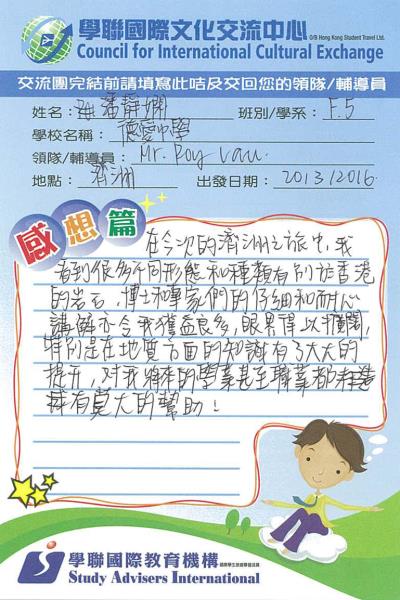 學聯國際文化交流中心 O/B Hong Kong Student Travel Ltd.
Council for International Cultural Exchange
交流團完結前請填寫此咭及交回您的領隊/輔導員
姓名：潘靜嫻 班別/學系：F.5
學校名稱：德愛中學
領隊/輔導員：Mr. Roy Lau.
地點：濟洲 出發日期：2013/2016
感想篇
在今次的濟洲之旅中，我
看到很多不同形態和種類有別於香港
的岩石，博士和專家們的仔細和耐心
講解亦令我獲益良多，眼界得以擴闊，
特別是在地質方面的知識有了大大的
提升，對我將來的學業甚至職業都
有莫大的幫助！
學聯國際教育機構
Study Advisers International